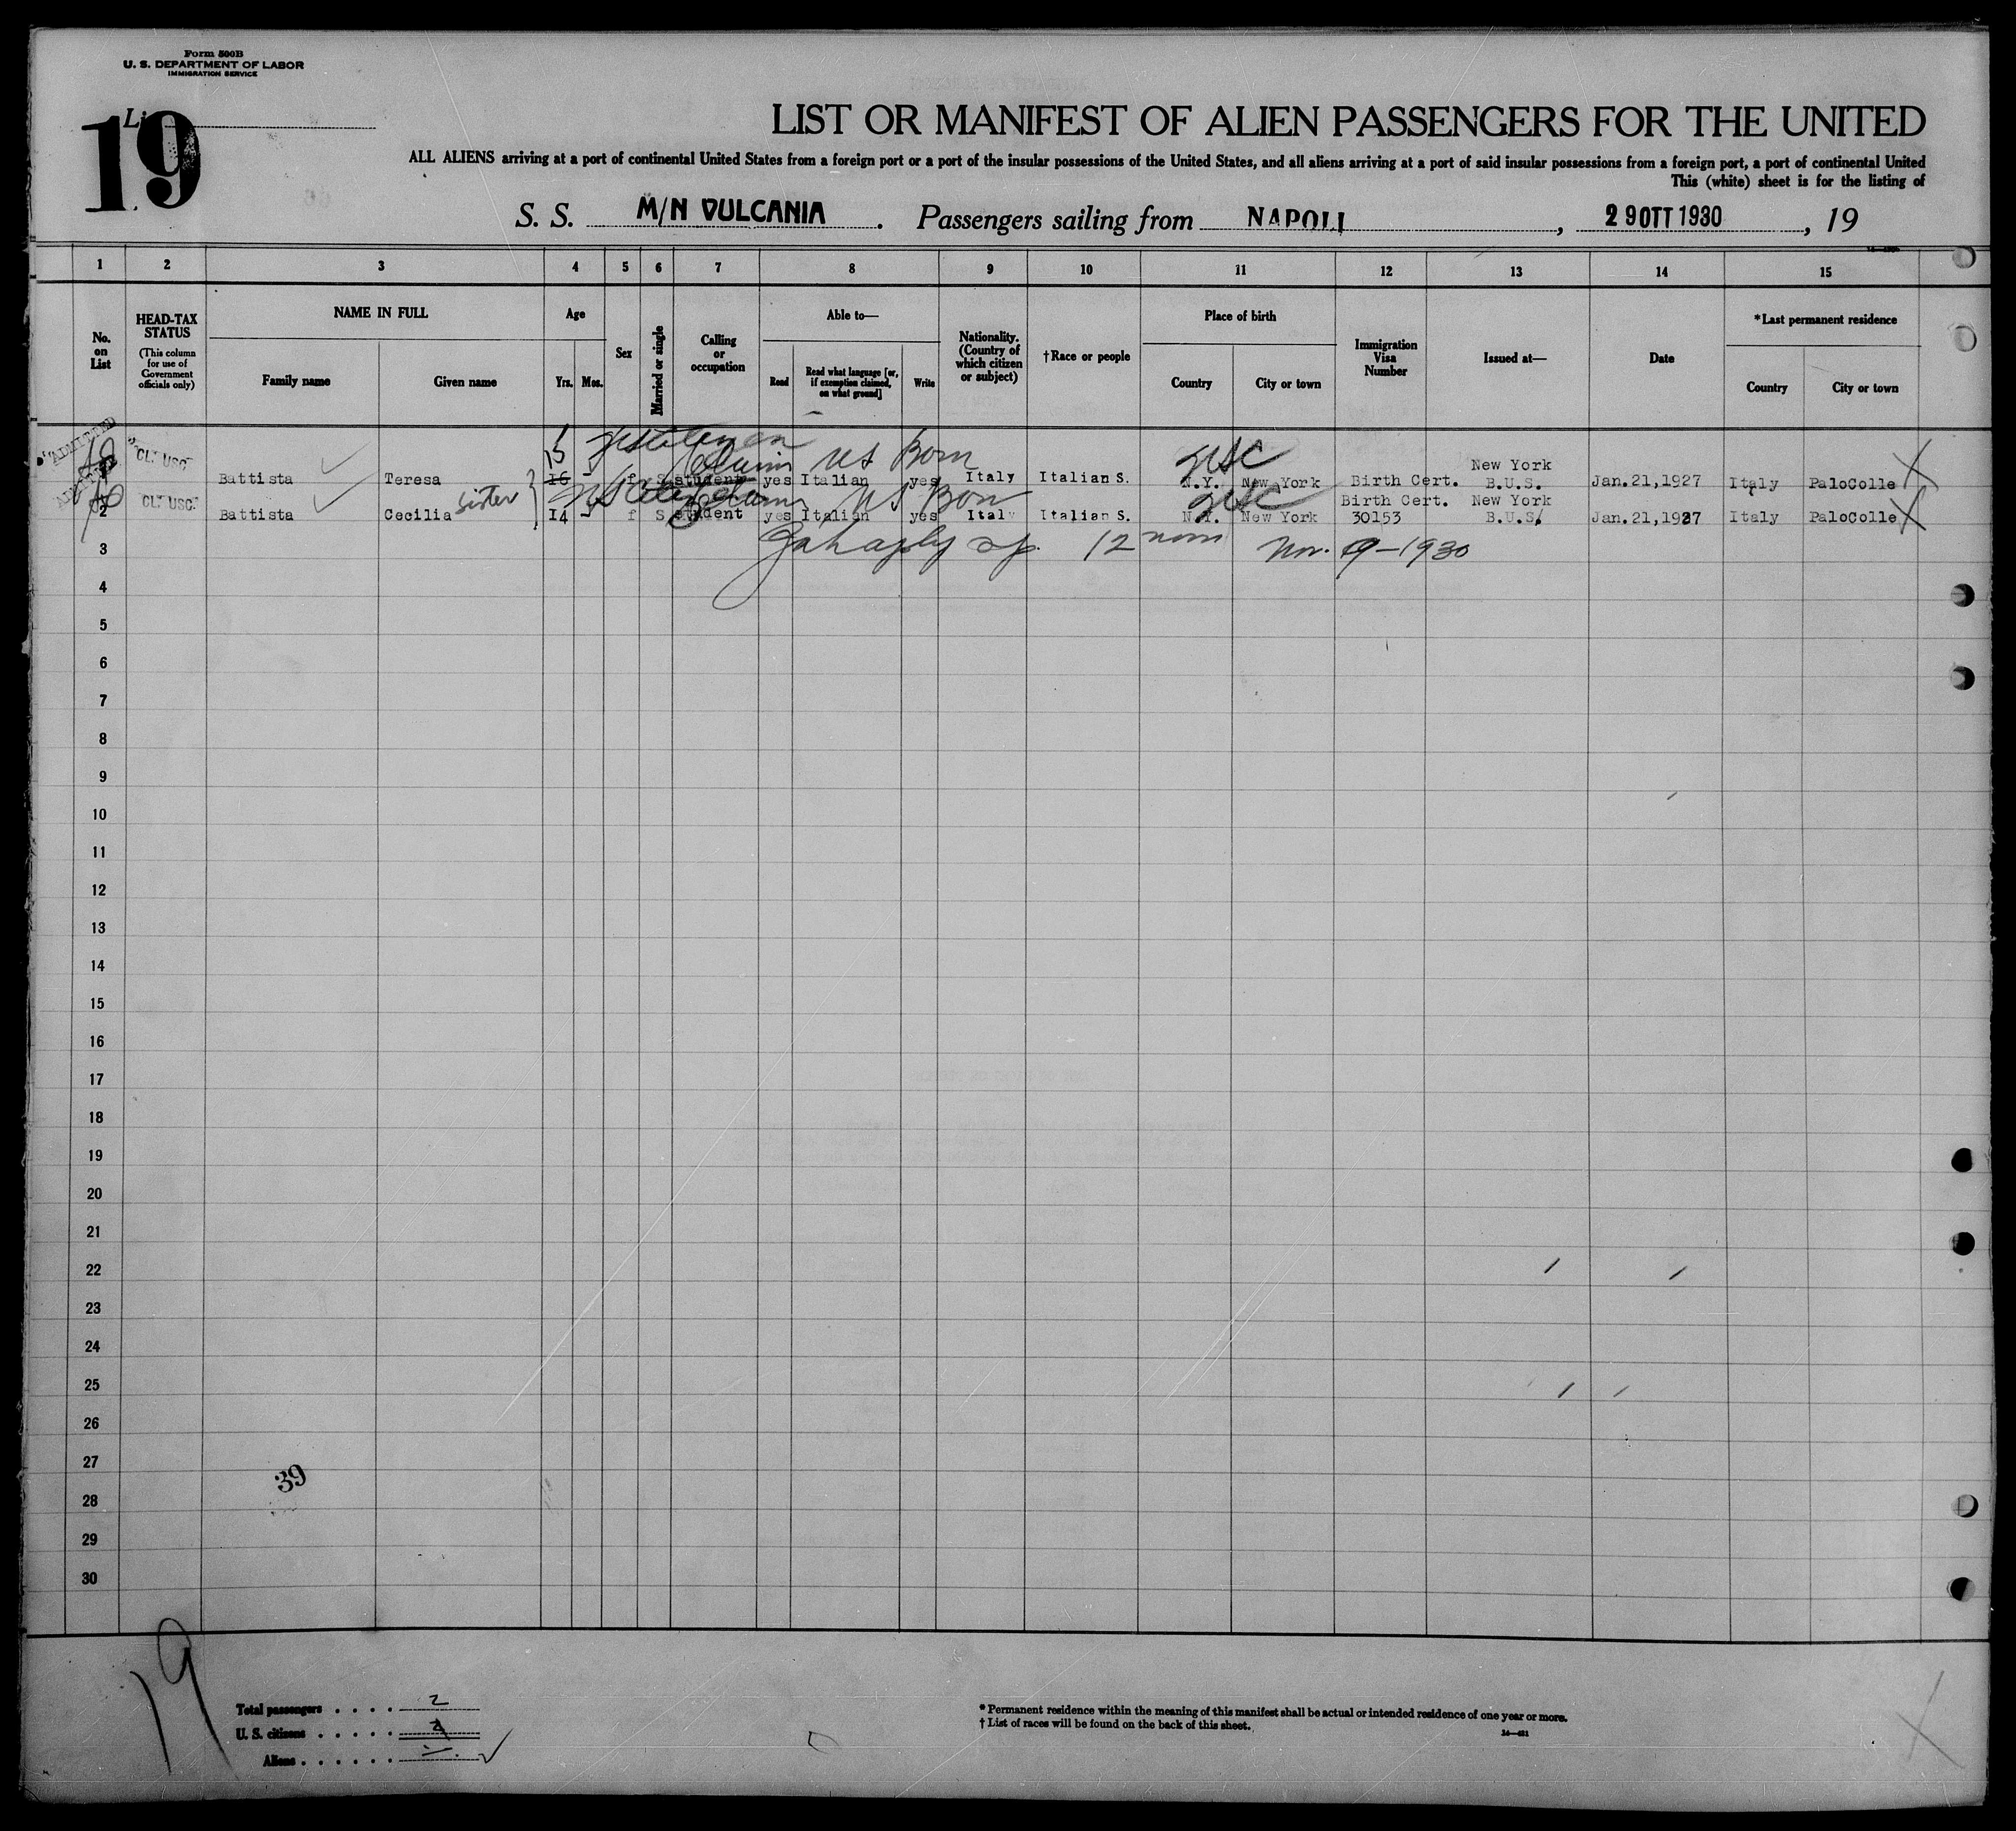 Form 500B
U. S. DEPARTMENT OF LABOR
IMMIGRATION SERVICE
19
LIST OR MANIFEST OF ALIEN PASSENGERS FOR THE UNITED
ALL ALIENS arriving at a port of continental United States from a foreign port or a port of the insular possessions of the United States, and all aliens arriving at a port of said insular possessions from a foreign port, a port of continental United
This (white) sheet is for the listing of
S. S. M/N VULCANIA. Passengers sailing from NAPOLI, 29 OTT 1930, 19
1 2 3 4 5 6 7 8 9 10 11 12 13 14 15
No. on List
HEAD-TAX STATUS
(This column for use of Government officials only)
NAME IN FULL
Family name Given name
Age
Yrs. Mos.
Sex
Married or single
Calling or occupation
Able to—
Read Read what language [or, if exemption claimed, on what ground] Write
Nationality. (Country of which citizen or subject)
†Race or people
Place of birth
Country City or town
Immigration Visa Number
Issued at—
Date
*Last permanent residence
Country City or town
ADMITTED
15
Claim US Born USC
CLT USC. Battista Teresa 16 - f S student yes Italian yes Italy Italian S. N.Y. New York Birth Cert. New York B.U.S. Jan.21,1927 Italy PaloColle X
ADMITTED
US Born USC
2 CLT USC. Battista Cecilia sister 14 - f S student yes Italian yes Italy Italian S. N.Y. New York Birth Cert. 30153 New York B.U.S. Jan.21,1927 Italy PaloColle X
3 12 Nov. 9-1930
4
5
6
7
8
9
10
11
12
13
14
15
16
17
18
19
20
21
22
23
24
25
26
27
39
28
29
30
19
Total passengers . . . . 2
U. S. citizens . . . . . 2
Aliens . . . . . . -
* Permanent residence within the meaning of this manifest shall be actual or intended residence of one year or more.
† List of races will be found on the back of this sheet.
X